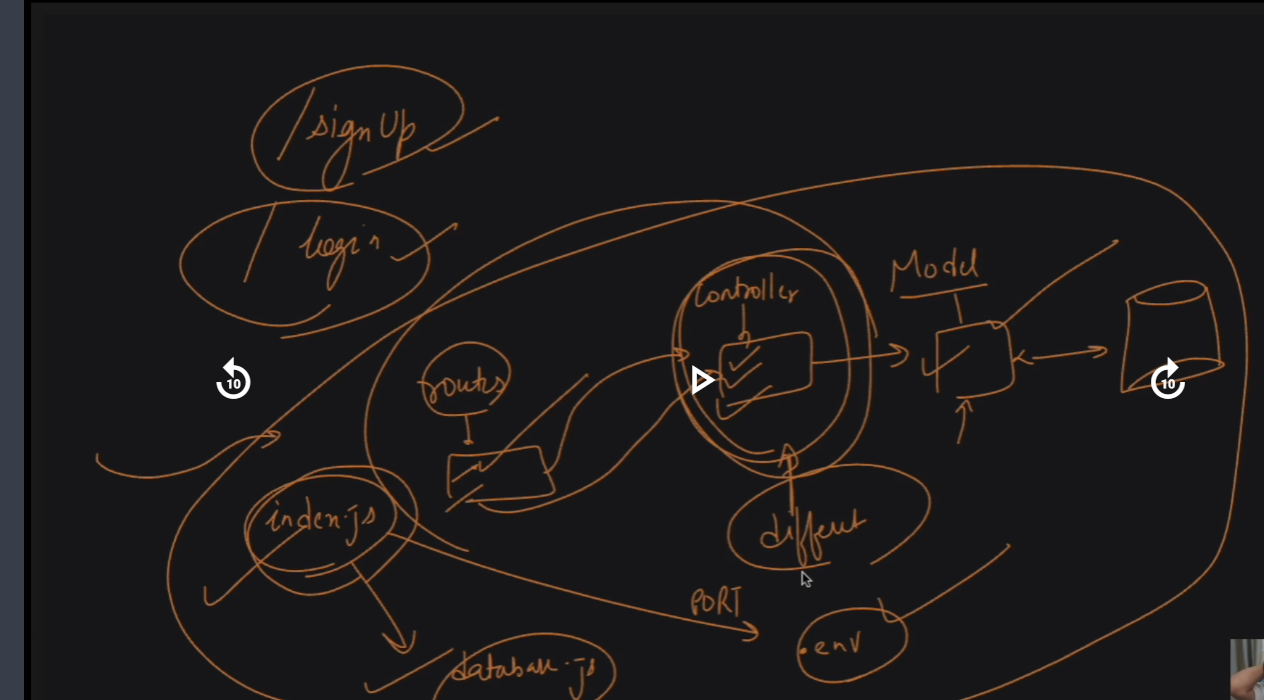 /signUp
/login
Model
Controller
routes
10
10
index.js
diffent
PORT
.env
database.js